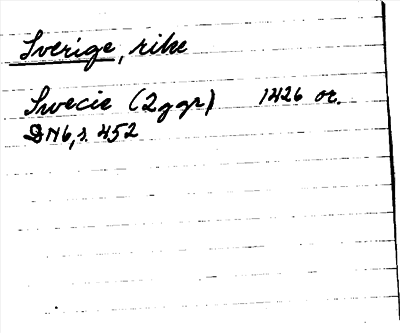 Sverige, rike
Swecie (2 ggr) 1426 or.
DN6, s. 452